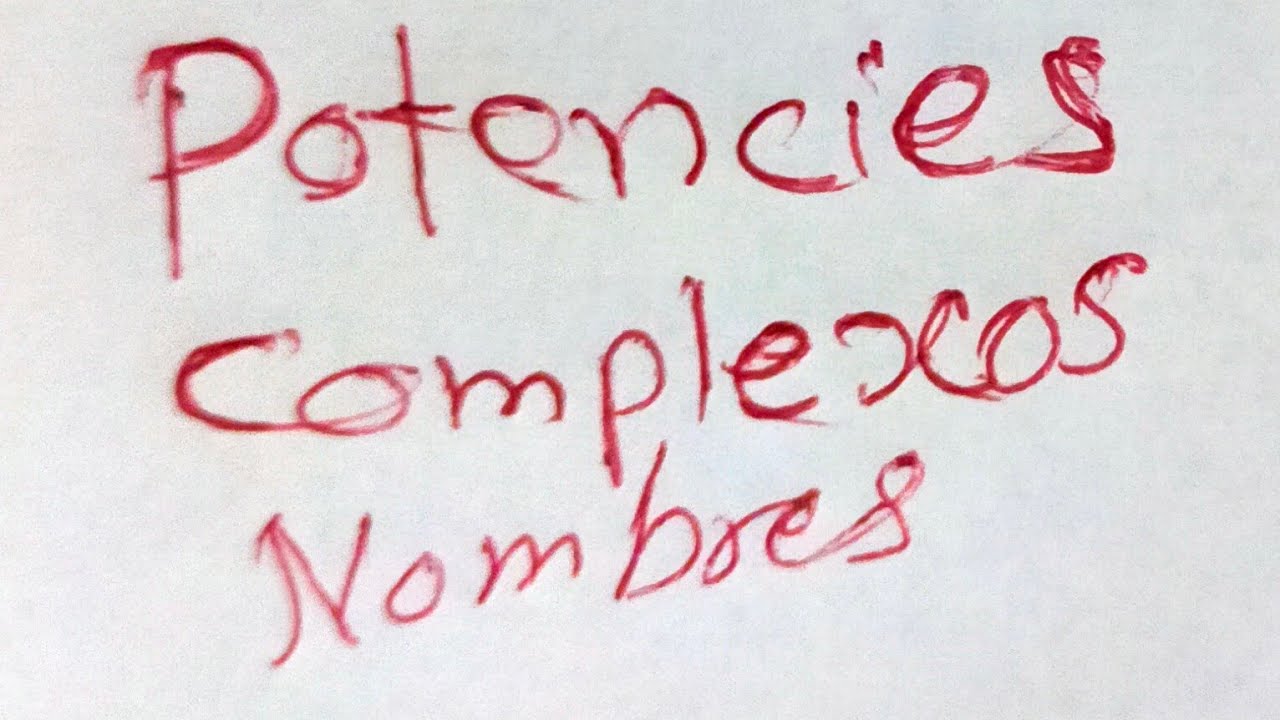 Potencies
Complexos
Nombres